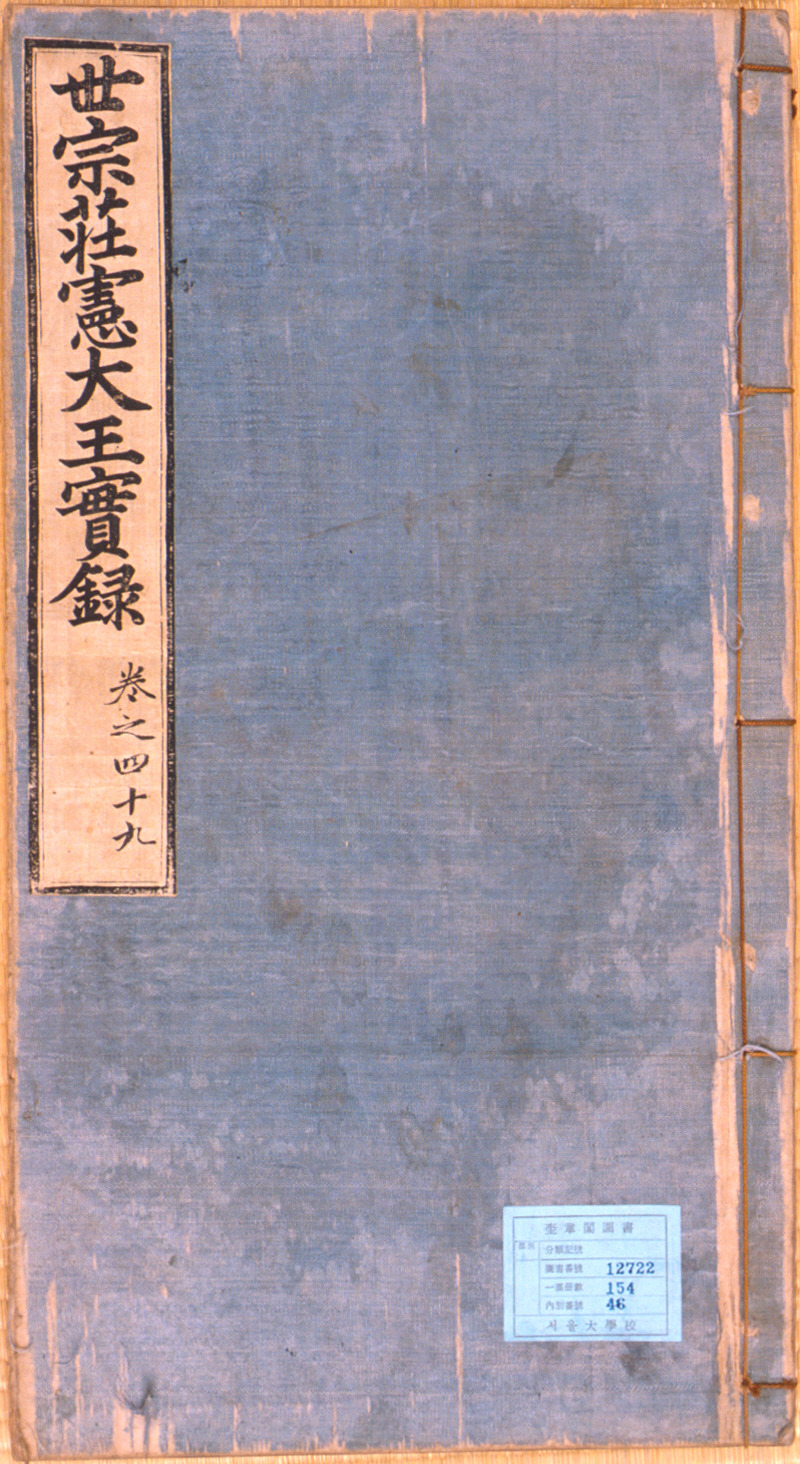 世宗莊憲大王實録
卷之四十九
奎章閣圖書
分類記號
圖書番號 12722
一書冊數 154
內別番號 46
서울大學校